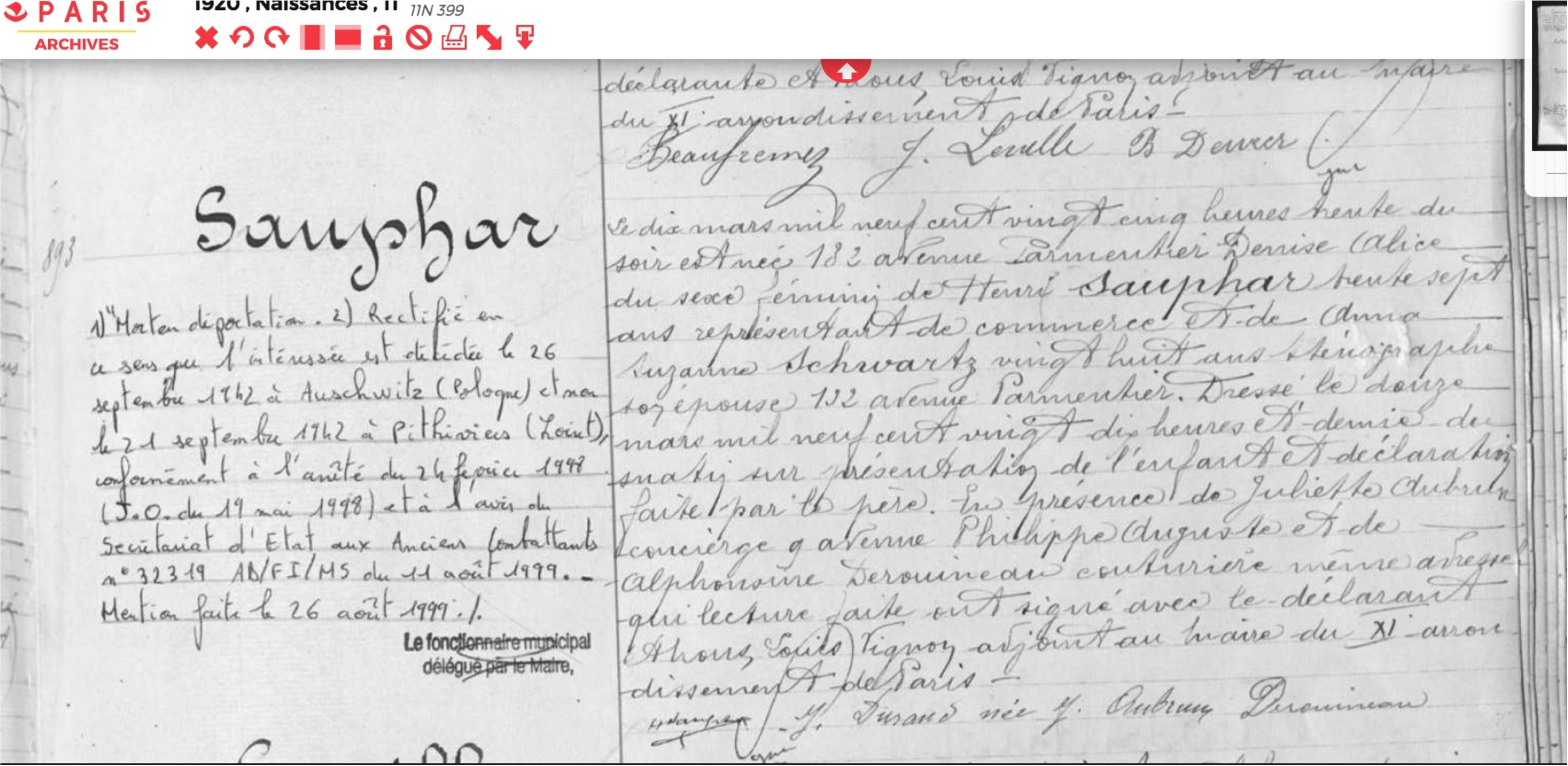 PARIS
ARCHIVES
1920, Naissances, 11 11N 399
déclarante et Nous, Louis Vignoy adjoint au Maire
du XIe arrondissement de Paris -
Beaufremez J. Lenelle B Denver
Sauphar
893
1) "Mort en déportation. 2) Rectifié en
ce sens que l'intéressée est décédée le 26
septembre 1942 à Auschwitz (Pologne) et non
le 21 septembre 1942 à Pithiviers (Loiret),
conformément à l'arrêté du 24 février 1998
(J.O. du 19 mai 1998) et à l'avis du
Secrétariat d'Etat aux Anciens Combattants
n° 32319 AD/FI/MS du 11 août 1999. -
Mention faite le 26 août 1999 ./.
Le fonctionnaire municipal
délégué par le Maire,
Le dix mars mil neuf cent vingt cinq heures trente du
soir est née 132 avenue Parmentier Denise Alice
du sexe féminin de Henri Sauphar trente sept
ans représentant de commerce et de Anna
Suzanne Schwartz vingt huit ans sténographe
son épouse 132 avenue Parmentier. Dressé le douze
mars mil neuf cent vingt dix heures et demie du
matin sur présentation de l'enfant et déclaration
faite par le père. En présence de Juliette Aubrun
concierge 9 avenue Philippe Auguste et de
Alphonsine Derouineau couturière même adresse
qui lecture faite ont signé avec le déclarant
et Nous, Louis Vignoy adjoint au Maire du XIe arron
dissement de Paris -
J. Durand née J. Aubrun Derouineau